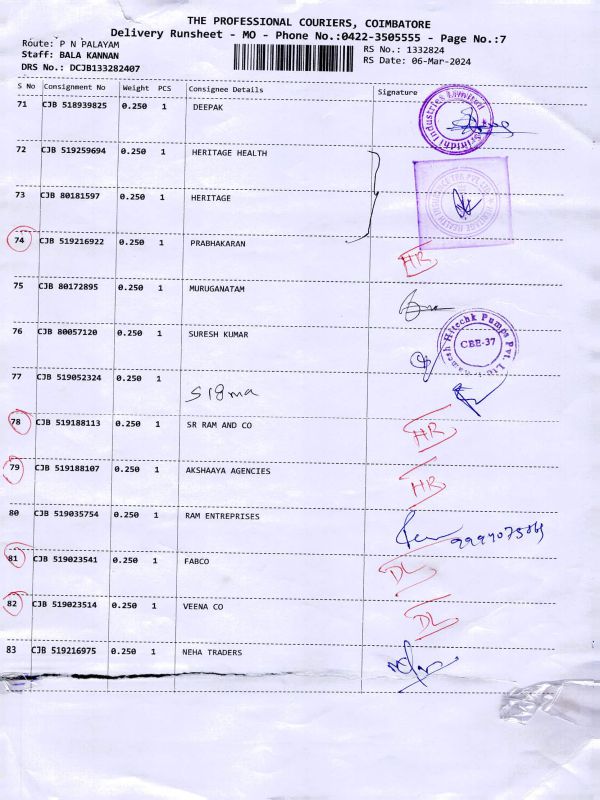 THE PROFESSIONAL COURIERS, COIMBATORE
Delivery Runsheet - MO - Phone No.:0422-3505555 - Page No.:7
Route: P N PALAYAM
RS No.: 1332824
Staff: BALA KANNAN
RS Date: 06-Mar-2024
DRS No.: DCJB133282407
S No Consignment No Weight PCS Consignee Details Signature
71 CJB 518939825 0.250 1 DEEPAK
Industries Limited
72 CJB 519259694 0.250 1 HERITAGE HEALTH
73 CJB 80181597 0.250 1 HERITAGE
74 CJB 519216922 0.250 1 PRABHAKARAN HR
75 CJB 80172895 0.250 1 MURUGANATAM
76 CJB 80057120 0.250 1 SURESH KUMAR
Hitechk Pumps Pvt. Ltd
CBE-37
77 CJB 519052324 0.250 1 Sigma
78 CJB 519188113 0.250 1 SR RAM AND CO HR
79 CJB 519188107 0.250 1 AKSHAAYA AGENCIES HR
80 CJB 519035754 0.250 1 RAM ENTREPRISES
81 CJB 519023541 0.250 1 FABCO DL
82 CJB 519023514 0.250 1 VEENA CO DL
83 CJB 519216975 0.250 1 NEHA TRADERS